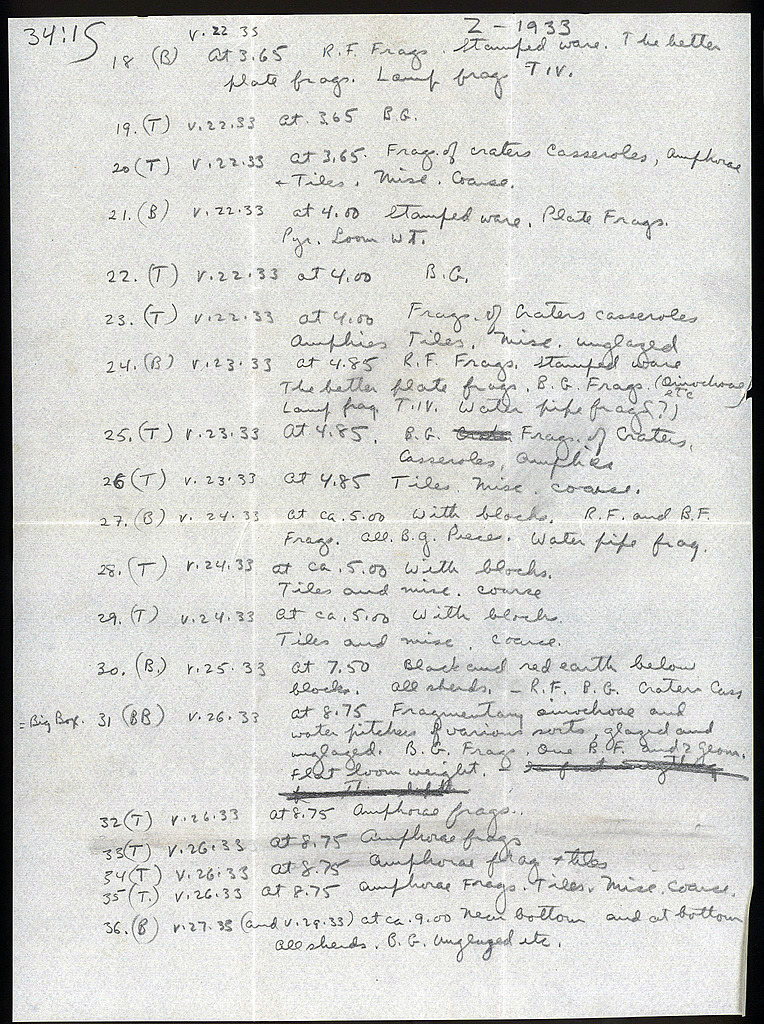 34:15 Z - 1933
18 (B) v.22 33 at 3.65 R.F. Frags. Stamped ware. The better
plate frags. Lamp frag T IV.
19. (T) v.22.33 at 3.65 B.G.
20 (T) v.22.33 at 3.65. Frags. of craters Casseroles, Amphorae
+ Tiles, Misc. Coarse.
21. (B) v.22.33 at 4.00 Stamped ware. Plate Frags.
Pyr. Loom WT.
22. (T) v.22.33 at 4.00 B.G.
23. (T) v.22.33 at 4.00 Frags. of Craters casseroles
Amphies Tiles. Misc. unglazed
24. (B) v.23.33 at 4.85 R.F. Frags. Stamped ware
The better plate frags. B.G. Frags. (oinochoae
etc)
Lamp frag. T.IV. Water pipe frags(?)
25. (T) v.23.33 At 4.85. B.G. Frags. of Craters,
Casseroles, Amphies
26 (T) v.23.33 at 4.85 Tiles. Misc. coarse.
27. (B) v.24.33 at ca. 5.00 with blocks. R.F. and B.F.
Frags. All B.G. Pieces. Water pipe frag.
28. (T) v.24.33 at ca. 5.00 With blocks.
Tiles and misc. coarse
29. (T) v.24.33 At ca. 5.00 With blocks.
Tiles and misc. coarse.
30. (B.) v.25.33 at 7.50 Black and red earth below
blocks. All sherds. - R.F. B.G. Craters Cass
= Big Box. 31 (BB) v.26.33 at 8.75 Fragmentary oinochoae and
water pitchers of various sorts, glazed and
unglazed. B.G. Frags. One B.F. and 2 Geom.
Flat loom weight. -
32 (T) v.26.33 at 8.75 Amphorae frags.
33 (T) v.26.33 at 8.75 Amphorae frags
34 (T) v.26.33 at 8.75 Amphorae frag + tiles
35 (T.) v.26.33 at 8.75 Amphorae Frags. Tiles. Misc. Coarse.
36. (B) v.27.33 (and v.29.33) at ca. 9.00 near bottom and at bottom
All sherds. B.G. Unglazed etc.